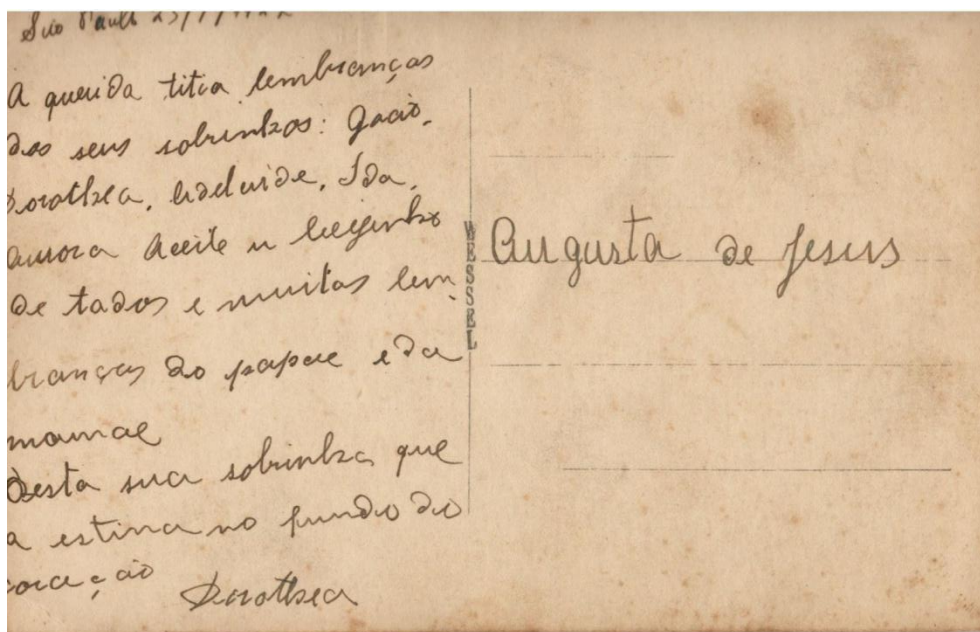 São Paulo
A querida titia lembranças
dos seus sobrinhos: Gacio,
Dorothea, Adelaide, Ida,
aurora Aceite u beijinho
de tados e muitas lem
branças do papae e da
mamae
Desta sua sobrinha que
a estina no fundo do
coração
Dorothea
WESSEL
Augusta de Jesus